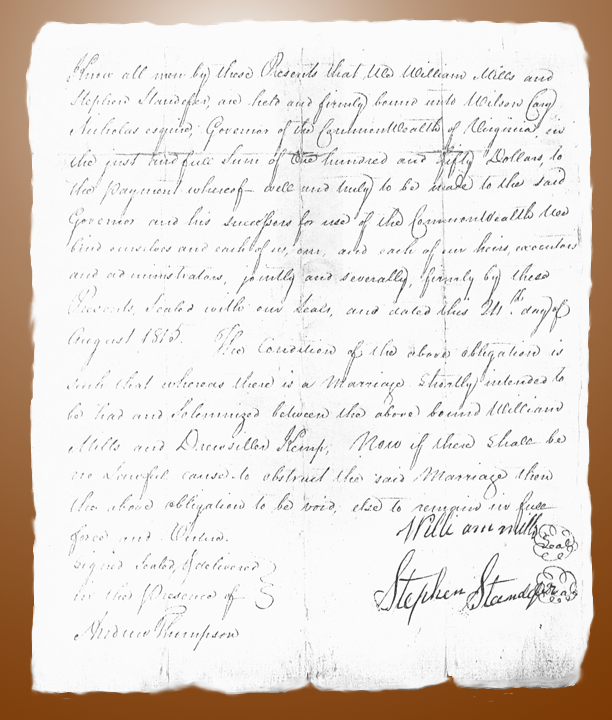 Know all men by these Presents that We William Mills and
Stephen Standefer, are held and firmly bound unto Wilson Cary
Nicholas esquire, Governor of the CommonWealth of Virginia, in
the just and full Sum of One hundred and fifty Dollars, to
the payment whereof well and truly to be made to the said
Governor and his successors for use of the CommonWealth We
bind ourselves and each of us, our, and each of our heirs, executors
and administrators, jointly and severally, firmly by these
Presents, Sealed with our Seals, and dated this 24th. day of
August 1815. The Condition of the above obligation is
such that whereas there is a Marriage Shortly intended to
be had and Solemnized between the above bound William
Mills and Drewsiller Kemp, Now if there Shall be
no Lawful cause to obstruct the said Marriage then
the above obligation to be void, else to remain in full
force and Virtue.
William mills Seal
Signed Sealed, & delivered
in the presence of
Stephen Standefer Seal
Andrew Thompson